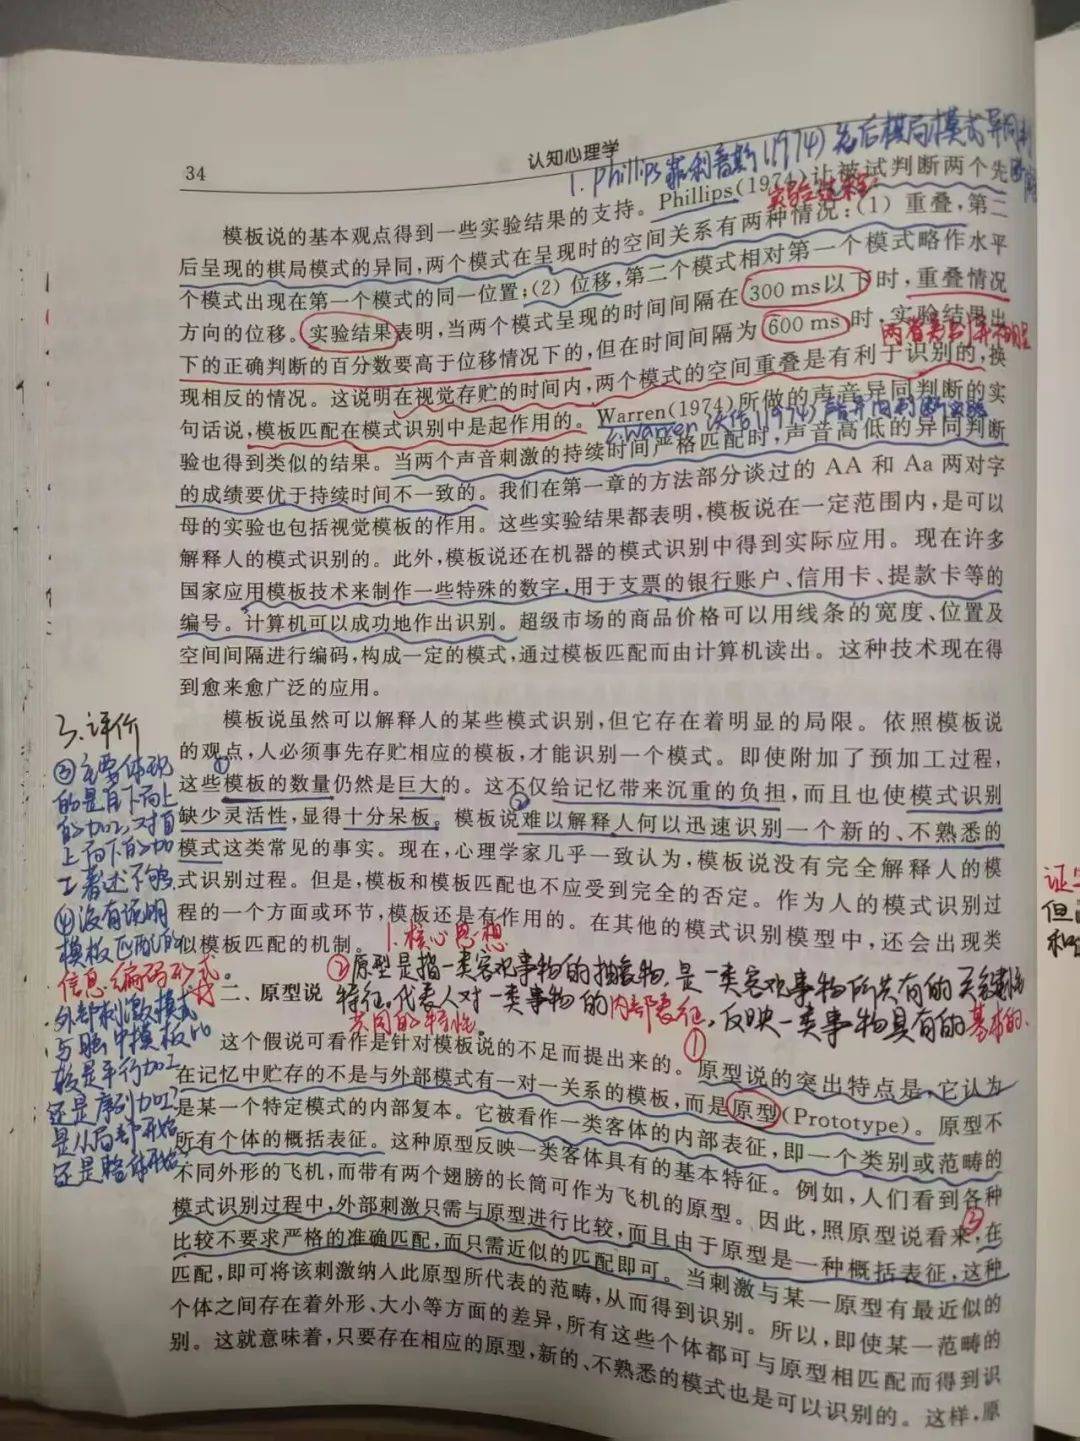 34
认知心理学
1. Phillips 菲利普斯(1974)先后棋局模式异同判断
模板说的基本观点得到一些实验结果的支持。Phillips(1974)让被试判断两个先
后呈现的棋局模式的异同,两个模式在呈现时的空间关系有两种情况:(1) 重叠,第二
个模式出现在第一个模式的同一位置;(2) 位移,第二个模式相对第一个模式略作水平
方向的位移。实验结果表明,当两个模式呈现的时间间隔在 300 ms以下时,重叠情况
下的正确判断的百分数要高于位移情况下的,但在时间间隔为 600 ms 时,实验结果出
现相反的情况。这说明在视觉存贮的时间内,两个模式的空间重叠是有利于识别的,换
句话说,模板匹配在模式识别中是起作用的。Warren(1974)所做的声音异同判断的实
2. Warren 沃伦(1974)声音异同判断实验
验也得到类似的结果。当两个声音刺激的持续时间严格匹配时,声音高低的异同判断
的成绩要优于持续时间不一致的。我们在第一章的方法部分谈过的 AA 和 Aa 两对字
母的实验也包括视觉模板的作用。这些实验结果都表明,模板说在一定范围内,是可以
解释人的模式识别的。此外,模板说还在机器的模式识别中得到实际应用。现在许多
国家应用模板技术来制作一些特殊的数字,用于支票的银行账户、信用卡、提款卡等的
编号。计算机可以成功地作出识别。超级市场的商品价格可以用线条的宽度、位置及
空间间隔进行编码,构成一定的模式,通过模板匹配而由计算机读出。这种技术现在得
到愈来愈广泛的应用。
模板说虽然可以解释人的某些模式识别,但它存在着明显的局限。依照模板说
的观点,人必须事先存贮相应的模板,才能识别一个模式。即使附加了预加工过程,
①
这些模板的数量仍然是巨大的。这不仅给记忆带来沉重的负担,而且也使模式识别
②
缺少灵活性,显得十分呆板。模板说难以解释人何以迅速识别一个新的、不熟悉的
模式这类常见的事实。现在,心理学家几乎一致认为,模板说没有完全解释人的模
式识别过程。但是,模板和模板匹配也不应受到完全的否定。作为人的模式识别过
程的一个方面或环节,模板还是有作用的。在其他的模式识别模型中,还会出现类
似模板匹配的机制。
3.评价
③主要体现
的是自下而上
的加工,对自
上而下的加
工著述不够
④没有说明
模板匹配的
信息编码形式
外部刺激模式
与脑中模板比
较是平行加工
还是序列加工?
是从局部开始
还是整体开始
1.核心思想
②原型是指一类客观事物的抽象物,是一类客观事物所共有的关键性
特征。代表人对一类事物的内部表征,反映一类事物具有的基本的、
共同的特性。
二、原型说
①
这个假说可看作是针对模板说的不足而提出来的。原型说的突出特点是,它认为
在记忆中贮存的不是与外部模式有一对一关系的模板,而是原型(Prototype)。原型不
是某一个特定模式的内部复本。它被看作一类客体的内部表征,即一个类别或范畴的
所有个体的概括表征。这种原型反映一类客体具有的基本特征。例如,人们看到各种
不同外形的飞机,而带有两个翅膀的长筒可作为飞机的原型。因此,照原型说看来,在
模式识别过程中,外部刺激只需与原型进行比较,而且由于原型是一种概括表征,这种
比较不要求严格的准确匹配,而只需近似的匹配即可。当刺激与某一原型有最近似的
匹配,即可将该刺激纳入此原型所代表的范畴,从而得到识别。所以,即使某一范畴的
个体之间存在着外形、大小等方面的差异,所有这些个体都可与原型相匹配而得到识
别。这就意味着,只要存在相应的原型,新的、不熟悉的模式也是可以识别的。这样,原
但